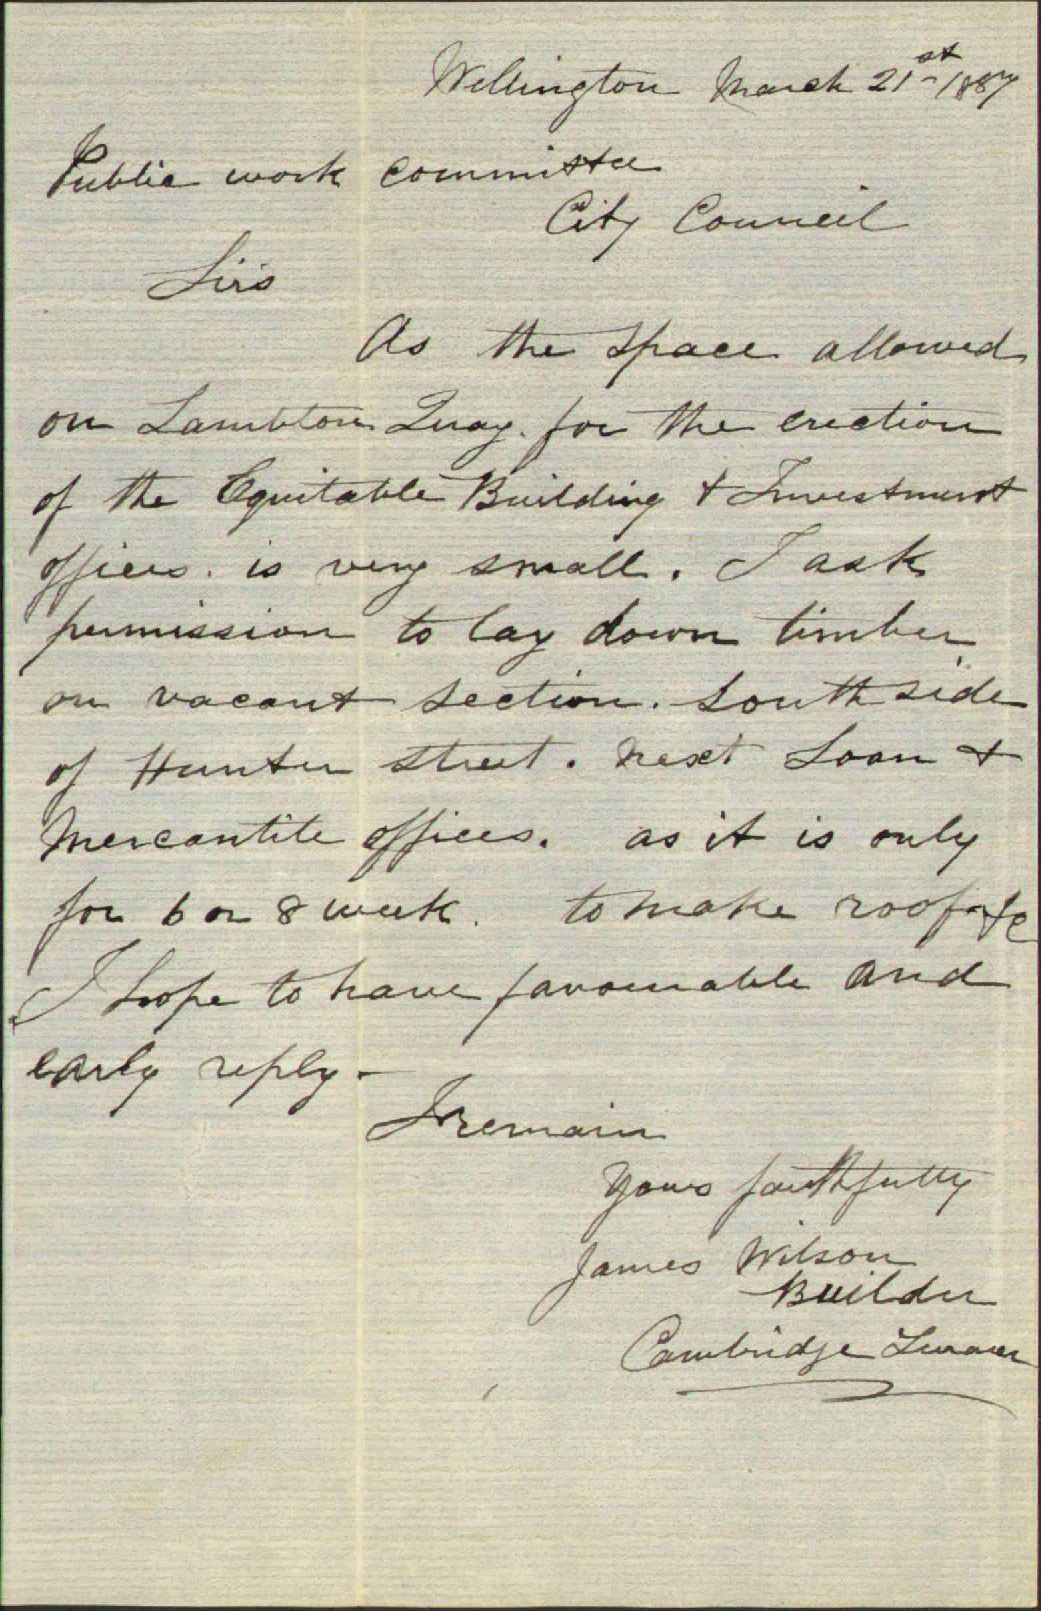 Wellington March 21st 1887
Public work committee
City Council
Sirs
As the space allowed
on Lambton Quay. for the erection
of the Equitable Building & Investment
offices. is very small. I ask
permission to lay down timber
on vacant section. South side
of Hunter street. next Loan &
Mercantile offices. as it is only
for 6 or 8 week. to make roof &c
I hope to have favourable and
early reply -
I remain
Yours faithfully
James Wilson
Builder
Cambridge Terrace